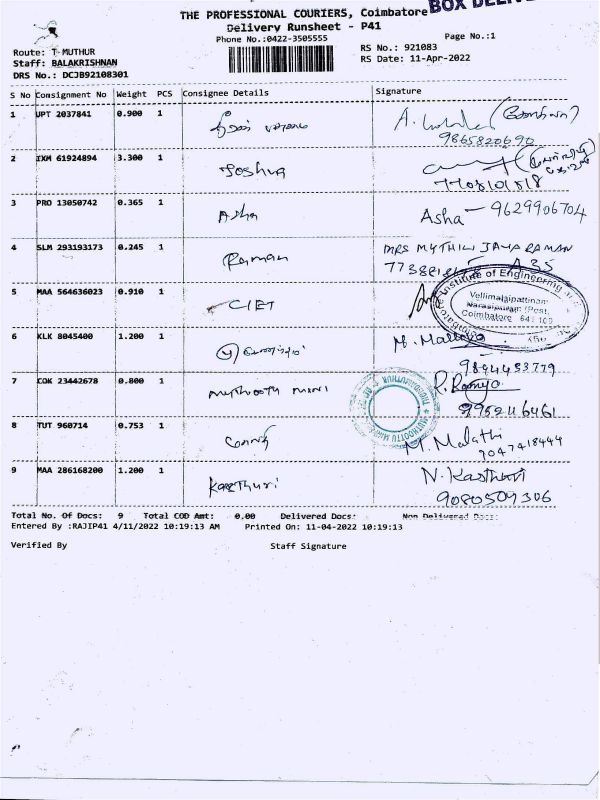 BOX DELIV
THE PROFESSIONAL COURIERS, Coimbatore
Delivery Runsheet - P41
Phone No.:0422-3505555
Page No.:1
Route: T-MUTHUR
RS No.: 921083
Staff: BALAKRISHNAN
RS Date: 11-Apr-2022
DRS No.: DCJB92108301
S No Consignment No Weight PCS Consignee Details Signature
1 UPT 2037841 0.900 1
9865820690
2 IXM 61924894 3.300 1 Joshua
3 PRO 13050742 0.365 1 Asha Asha - 9629906704
4 SLM 293193173 0.245 1 Raman MRS MYTHILI JAYARAMAN
A35
5 MAA 564636023 0.910 1 CIET
Institute of Engineering
Vellimalaipattinam
Narasipuram (Post)
Coimbatore 641 109
6 KLK 8045400 1.200 1
9894453779
7 COK 23442678 0.800 1 Muthooth Mini R. Ramya
8 TUT 960714 0.753 1 M. Malathi
9047418444
9 MAA 286168200 1.200 1 Kasthuri N. Kasthuri
9080509306
Total No. Of Docs: 9 Total COD Amt: 0.00 Delivered Docs: Non Delivered Docs:
Entered By :RAJIP41 4/11/2022 10:19:13 AM Printed On: 11-04-2022 10:19:13
Verified By Staff Signature